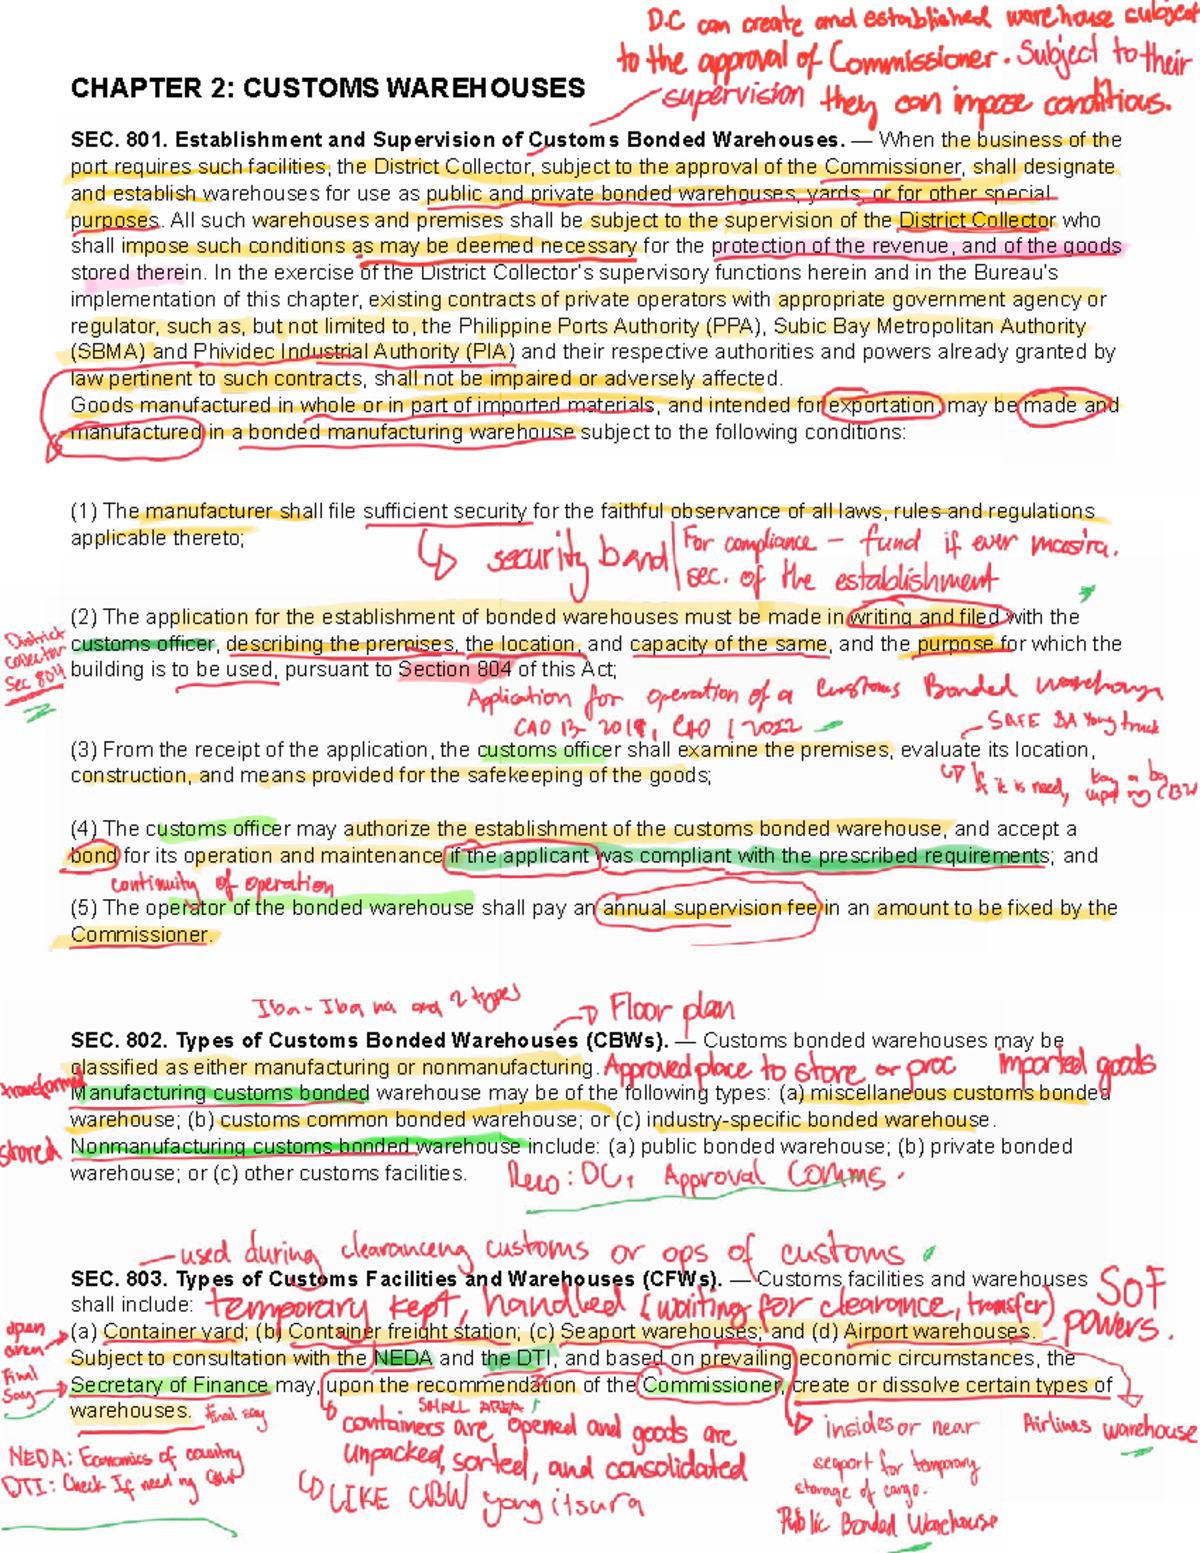 D.C can create and established warehouse subject
to the approval of Commissioner. Subject to their
supervision they can impose conditions.
CHAPTER 2: CUSTOMS WAREHOUSES
SEC. 801. Establishment and Supervision of Customs Bonded Warehouses. — When the business of the
port requires such facilities, the District Collector, subject to the approval of the Commissioner, shall designate
and establish warehouses for use as public and private bonded warehouses, yards, or for other special
purposes. All such warehouses and premises shall be subject to the supervision of the District Collector who
shall impose such conditions as may be deemed necessary for the protection of the revenue, and of the goods
stored therein. In the exercise of the District Collector's supervisory functions herein and in the Bureau's
implementation of this chapter, existing contracts of private operators with appropriate government agency or
regulator, such as, but not limited to, the Philippine Ports Authority (PPA), Subic Bay Metropolitan Authority
(SBMA) and Phividec Industrial Authority (PIA) and their respective authorities and powers already granted by
law pertinent to such contracts, shall not be impaired or adversely affected.
Goods manufactured in whole or in part of imported materials, and intended for exportation, may be made and
manufactured in a bonded manufacturing warehouse subject to the following conditions:
(1) The manufacturer shall file sufficient security for the faithful observance of all laws, rules and regulations
applicable thereto;
security bond
For compliance – fund if ever
sec. of the establishment
(2) The application for the establishment of bonded warehouses must be made in writing and filed with the
customs officer, describing the premises, the location, and capacity of the same, and the purpose for which the
building is to be used, pursuant to Section 804 of this Act;
District
Collector
Sec 804
Application for operation of a Customs Bonded warehouse
CAO 13- 2019, CAO 1 2022
SAFE BA Yong truck
(3) From the receipt of the application, the customs officer shall examine the premises, evaluate its location,
construction, and means provided for the safekeeping of the goods;
if it is need,
(4) The customs officer may authorize the establishment of the customs bonded warehouse, and accept a
bond for its operation and maintenance if the applicant was compliant with the prescribed requirements; and
continuity of operation
(5) The operator of the bonded warehouse shall pay an annual supervision fee in an amount to be fixed by the
Commissioner.
Iba-Iba na ang 2 types
Floor plan
SEC. 802. Types of Customs Bonded Warehouses (CBWs). — Customs bonded warehouses may be
classified as either manufacturing or nonmanufacturing. Approved place to store or proc imported goods
transformed
Manufacturing customs bonded warehouse may be of the following types: (a) miscellaneous customs bonded
warehouse; (b) customs common bonded warehouse; or (c) industry-specific bonded warehouse.
stored
Nonmanufacturing customs bonded warehouse include: (a) public bonded warehouse; (b) private bonded
warehouse; or (c) other customs facilities.
Reco: DC, Approval Comms.
used during clearanceng customs or ops of customs
SEC. 803. Types of Customs Facilities and Warehouses (CFWs). — Customs facilities and warehouses
shall include: temporary kept, handled (waiting for clearance, transfer)
SOF
powers.
open
area
(a) Container yard; (b) Container freight station; (c) Seaport warehouses; and (d) Airport warehouses.
Subject to consultation with the NEDA and the DTI, and based on prevailing economic circumstances, the
Final
Say
Secretary of Finance may, upon the recommendation of the Commissioner, create or dissolve certain types of
warehouses. Final say
SMALL AREA
containers are opened and goods are
unpacked, sorted, and consolidated
LIKE CBW yong itsura
insides or near
seaport for temporary
storage of cargo.
Public Bonded Warehouse
Airlines warehouse
NEDA: Economics of country
DTI: Check If need ng CBW